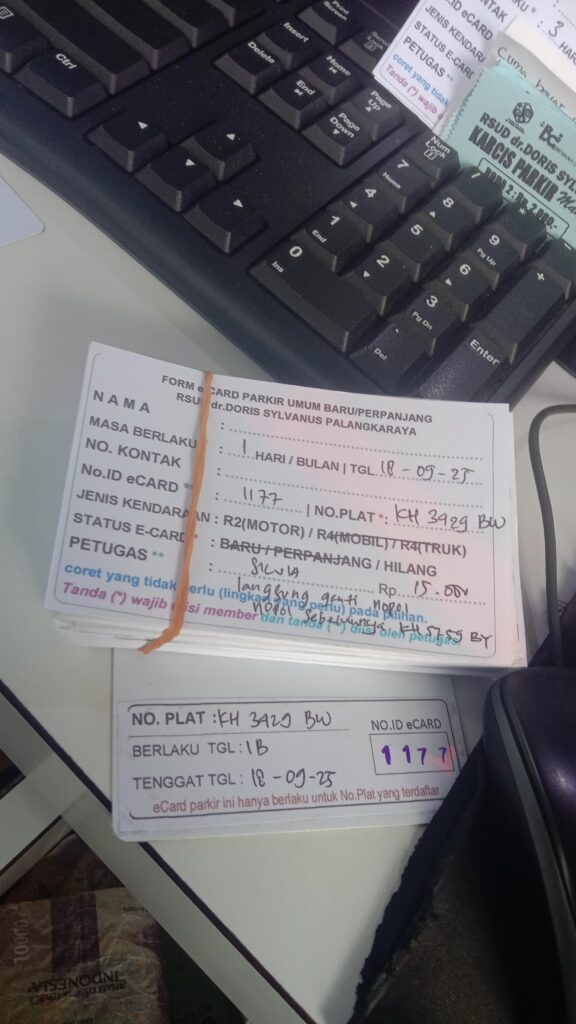 Ctrl
Print
Screen
Insert
Delete
Home
End
Page
Up
Page
Down
Num
Lock
7
Home
8
9
Pg Up
4
5
6
1
End
2
3
Pg Dn
0
Ins
Del
Enter
+
KONTAK
NO.ID eCARD
JENIS KENDARA
STATUS E-CARD
PETUGAS **
coret yang tidak
Tanda (*) wajib
: 3 HARI
RSUD dr.DORIS SYLV
KARCIS PARKIR
FORM eCARD PARKIR UMUM BARU/PERPANJANG
RSUD dr.DORIS SYLVANUS PALANGKARAYA
NAMA :
MASA BERLAKU : 1 HARI / BULAN | TGL 18 - 09 - 25
NO. KONTAK :
No.ID eCARD ** : 1177 | NO.PLAT * : KH 3929 BW
JENIS KENDARAAN : R2(MOTOR) / R4(MOBIL) / R4(TRUK)
STATUS E-CARD * : BARU / PERPANJANG / HILANG
PETUGAS ** : SILVIA Rp. 15.000
langsung ganti nopol
nopol sebelumnya KH 5759 BY
coret yang tidak perlu (lingkari yang perlu) pada pilihan.
Tanda (*) wajib diisi member dan tanda (**) diisi oleh petugas.
NO. PLAT : KH 3929 BW
NO.ID eCARD
BERLAKU TGL : 1B
1177
TENGGAT TGL : 18 - 09 - 25
eCard parkir ini hanya berlaku untuk No.Plat yang terdaftar
10000
INDONESIA